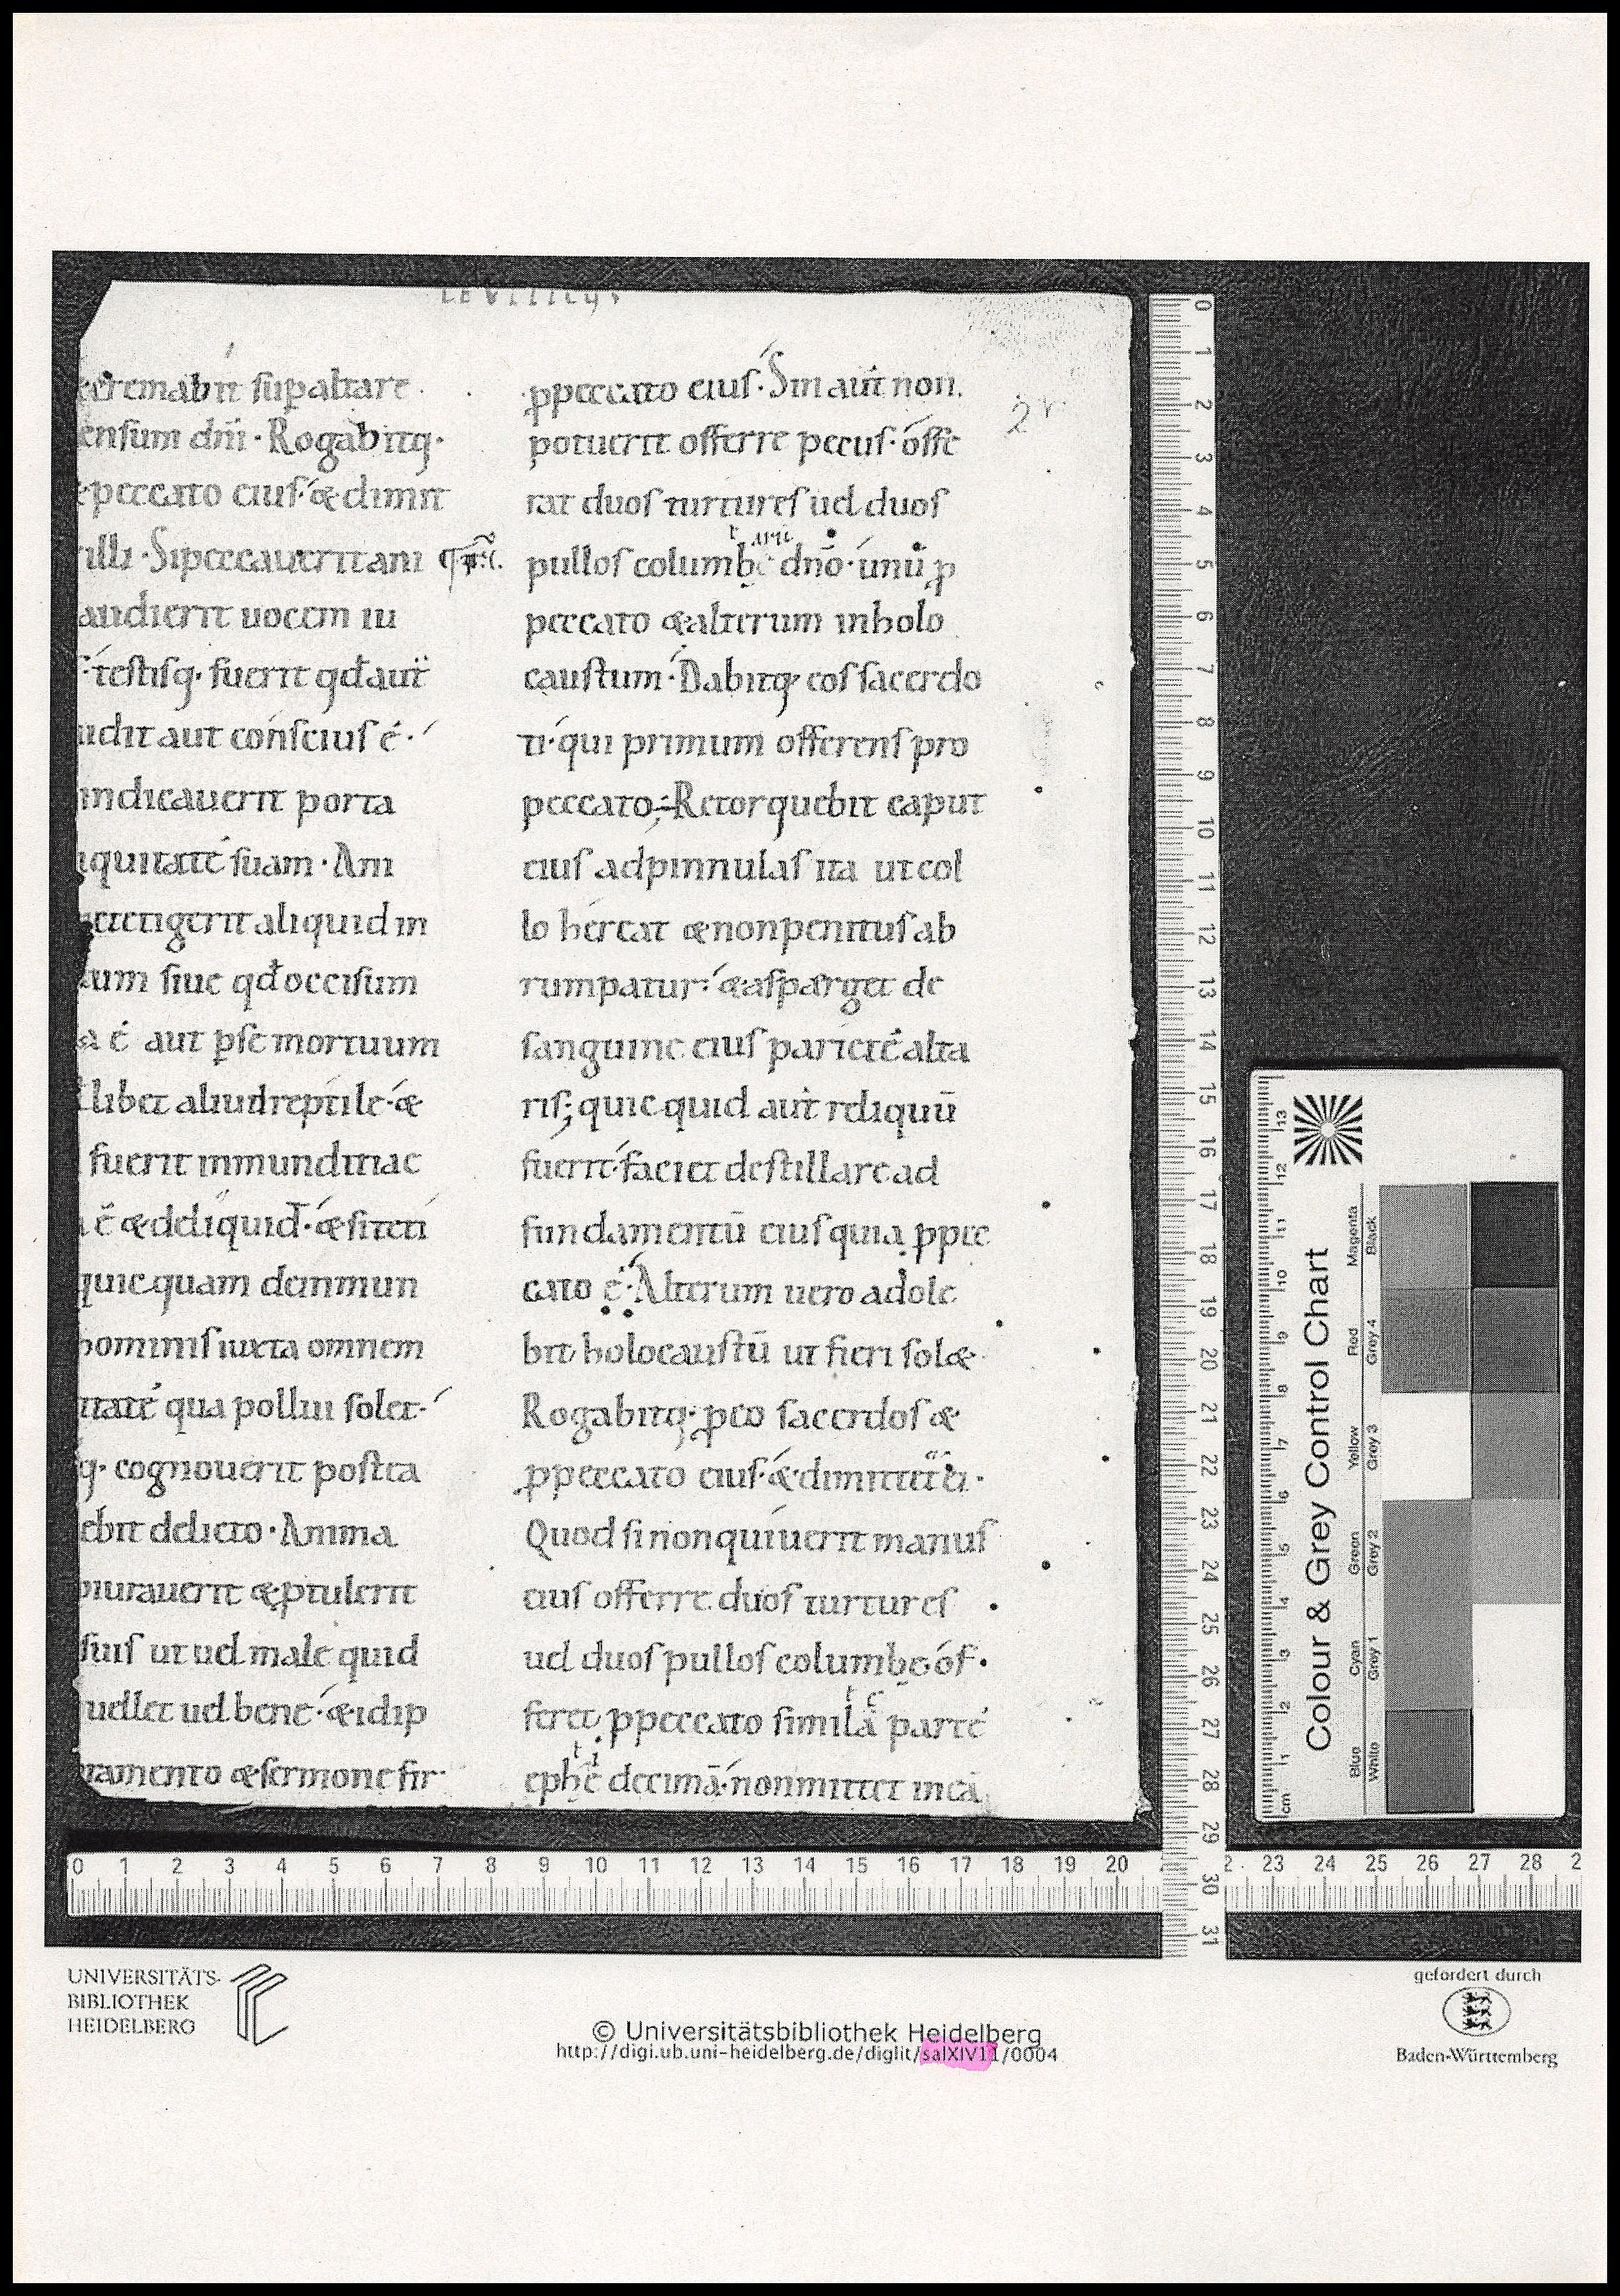 LEVITICUS
cremabit sup altare
ensum dn̄i · Rogabitq·
peccato eiuſ· & dimit
illi · Si peccaverit ani
audierit uocem iu
teſtiſq· fuerit qđ aut
idit aut conſciuſ ē·
indicauerit porta
iquitatē ſuam · Ani
tetigerit aliquid in
um ſiue qđ occiſum
a ē aut p̲ſe mortuum
libet aliud reptile· &
fuerit inmunditiae
ē & deliquid· & ſi teti
quicquam deinmun
hominiſ iuxta omnem
itatē qua pollui ſolet·
q· cognouerit poſtea
ebit delicto · Anima
iurauerit & ꝓtulerit
ſuiſ ut uel male quid
uellet uel bene· & idip
ramento & ſermone fir
ꝓpeccato eiuſ· Sin aut̄ non
2r
potuerit offerre pecuſ· offe
rat duoſ turtureſ uel duoſ
pulloſ columbe dn̄o· unū ꝓ
peccato & alterum inholo
cauſtum· Dabitq· eoſ ſacerdo
ti· qui primum offerenſ pro
peccato; Retorquebit caput
eiuſ adpinnulaſ ita ut col
lo hereat & non penituſ ab
rumpatur· & aſparget de
ſanguine eiuſ parietē alta
riſ; quicquid aut̄ reliquū
fuerit· faciet deſtillare ad
fundamentū eiuſ quia ꝓpec
cato ē· Alterum uero adole
bit holocauſtū ut fieri ſol&
Rogabitq· ꝓeo ſacerdoſ &
ꝓpeccato eiuſ· & dimittet̄ ei·
Quod ſi non quiuerit manuſ
eiuſ offerre duoſ turtureſ
uel duoſ pulloſ columbe of·
feret ꝓpeccato ſimila partē
ephe decimā· non mittet in eā
0 1 2 3 4 5 6 7 8 9 10 11 12 13 14 15 16 17 18 19 20 23 24 25 26 27 28 2
0 1 2 3 4 5 6 7 8 9 10 11 12 13 14 15 16 17 18 19 20 21 22 23 24 25 26 27 28 29 30 31
Colour & Grey Control Chart
Blue Cyan Green Yellow Red Magenta
White Grey 1 Grey 2 Grey 3 Grey 4 Black
cm 1 2 3 4 5 6 7 8 9 10 11 12 13
UNIVERSITÄTS-
BIBLIOTHEK
HEIDELBERG
© Universitätsbibliothek Heidelberg
http://digi.ub.uni-heidelberg.de/diglit/salXIV11/0004
gefördert durch
Baden-Württemberg